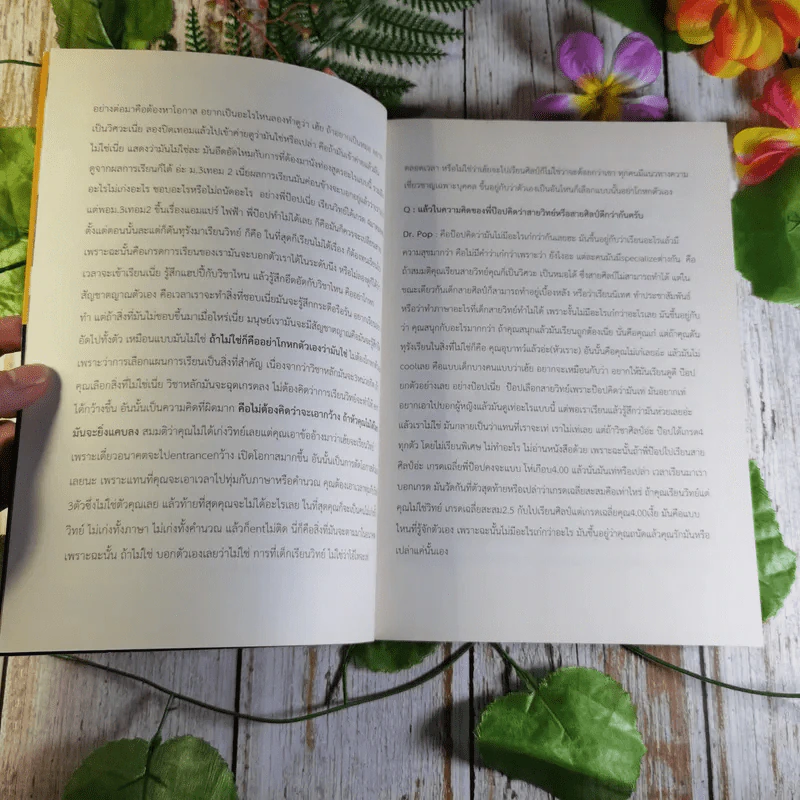 อย่างต่อมาคือต้องหาโอกาส อยากเป็นอะไรไหนลองทำดูว่า เฮ้ย ถ้าอยากเป็นหมอ
เป็นวิศวะเนี่ย ลองปิดเทอมแล้วไปเข้าค่ายดูว่ามันใช่หรือเปล่า คือถ้ามันเข้าค่ายแล้วมัน
ไม่ใช่เนี่ย แสดงว่ามันไม่ใช่ละ มันอึดอัดไหมกับการที่ต้องมานั่งท่องสูตรอะไรแบบนี้
ดูจากผลการเรียนก็ได้ อ่ะ ม.3เทอม 2 เนี่ยผลการเรียนมันค่อนข้างจะบอกอยู่แล้วว่าเรา
อะไรไม่เก่งอะไร ชอบอะไรหรือไม่ถนัดอะไร อย่างพี่ป๊อปเนี่ย เรียนวิทย์ได้เกรด
แต่พอม.3เทอม2 ขึ้นเรื่องแอมแปร์ ไฟฟ้า พี่ป๊อปทำไม่ได้เลย ก็คือมันก็ควรจะเปลี่ยน
ตั้งแต่ตอนนั้นละแต่ก็ดันทุรังมาเรียนวิทย์ ก็คือ ในที่สุดก็เรียนไม่ได้เรื่อง ก็ต้อง
เพราะฉะนั้นคือเกรดการเรียนของเรามันจะบอกตัวเราได้ในระดับนึง หรือไม่
เวลาจะเข้าเรียนเนี่ย รู้สึกแฮปปี้กับวิชาไหน แล้วรู้สึกอึดอัดกับวิชาไหน คือ
สัญชาตญาณตัวเอง คือเวลาเราจะทำสิ่งที่ชอบเนี่ยมันจะรู้สึกกระดือรือร้น
ทำ แต่ถ้าสิ่งที่มันไม่ชอบขึ้นมาเมื่อไหร่เนี่ย มนุษย์เรามันจะมีสัญชาตญาณคือมัน
อัดไปทั้งตัว เหมือนแบบมันไม่ใช่ ถ้าไม่ใช่ก็คืออย่าโกหกตัวเองว่ามันใช่
เพราะว่าการเลือกแผนการเรียนเป็นสิ่งที่สำคัญ เนื่องจากว่าวิชาหลักมัน
คุณเลือกสิ่งที่ไม่ใช่เนี่ย วิชาหลักมันจะฉุดเกรดลง ไม่ต้องคิดว่าการเรียนวิทย์จะทำให้
ได้กว้างขึ้น อันนั้นเป็นความคิดที่ผิดมาก คือไม่ต้องคิดว่าจะเอากว้าง ถ้าหัวคุณไม่ได้
มันจะยิ่งแคบลง สมมติว่าคุณไม่ได้เก่งวิทย์เลยแต่คุณเอาข้ออ้างมาว่าเฮ้ยจะเรียนวิทย์
เพราะเดี๋ยวอนาคตจะไปentranceกว้าง เปิดโอกาสมากขึ้น อันนั้นเป็นการ
เลยนะ เพราะแทนที่คุณจะเอาเวลาไปทุ่มกับภาษาหรือคำนวณ คุณต้องเอา
3ตัวซึ่งไม่ใช่ตัวคุณเลย แล้วท้ายที่สุดคุณจะไม่ได้อะไรเลย ในที่สุดคุณก็จะเป็นคนไม่เก่ง
วิทย์ ไม่เก่งทั้งภาษา ไม่เก่งทั้งคำนวณ แล้วก็entไม่ติด นี่ก็คือสิ่งที่มันจะตามมา
เพราะฉะนั้น ถ้าไม่ใช่ บอกตัวเองเลยว่าไม่ใช่ การที่เด็กเรียนวิทย์ ไม่ใช่ว่า
ตลอดเวลา หรือไม่ใช่ว่าเฮ้ยจะไปเรียนศิลป์ก็ไม่ใช่ว่าจะด้อยกว่าเขา ทุกคนมีแนวทางความ
เชี่ยวชาญเฉพาะบุคคล ขึ้นอยู่กับว่าตัวเองเป็นอันไหนก็เลือกแบบนั้นอย่าโกหกตัวเอง
Q : แล้วในความคิดของพี่ป๊อปคิดว่าสายวิทย์หรือสายศิลป์ดีกว่ากันครับ
Dr. Pop : คือป๊อปคิดว่ามันไม่มีอะไรเก่งกว่ากันเลยฮะ มันขึ้นอยู่กับว่าเรียนอะไรแล้วมี
ความสุขมากกว่า คือไม่มีคำว่าเก่งกว่าเพราะว่า ยังไงอะ แต่ละคนมันมีspecializeต่างกัน คือ
ถ้าสมมติคุณเรียนสายวิทย์คุณก็เป็นวิศวะ เป็นหมอได้ ซึ่งสายศิลป์ไม่สามารถทำได้ แต่ใน
ขณะเดียวกันเด็กสายศิลป์ก็สามารถทำอยู่เบื้องหลัง หรือว่าเรียนนิเทศ ทำประชาสัมพันธ์
หรือว่าทำภาษาอะไรที่เด็กสายวิทย์ทำไม่ได้ เพราะงั้นไม่มีอะไรเก่งกว่าอะไรเลย มันขึ้นอยู่กับ
ว่า คุณสนุกกับอะไรมากกว่า ถ้าคุณสนุกแล้วมันเรียนถูกต้องเนี่ย นั่นคือคุณเก่ง แต่ถ้าคุณดัน
ทุรังเรียนในสิ่งที่ไม่ใช่ก็คือ คุณอุบาทว์แล้วอ่ะ(หัวเราะ) อันนั้นคือคุณไม่เก่งเลยอ่ะ แล้วมันไม่
coolเลย คือแบบเด็กบางคนแบบว่าเฮ้ย อยากจะเหมือนกับว่า อยากให้มันเรียนดูดี ป๊อป
ยกตัวอย่างเลย อย่างป๊อปเนี่ย ป๊อปเลือกสายวิทย์เพราะป๊อปคิดว่ามันเท่ มันอยาก
อยากเอาไปอวดผู้หญิงแล้วมันดูเท่อะไรแบบนี้ แต่พอเราเรียนแล้วรู้สึกว่ามันห่วยเลยอ่ะ
แล้วเราไม่ใช่ มันกลายเป็นว่าแทนที่เราจะเท่ เราไม่เท่เลย แต่ถ้าวิชาศิลป์อ่ะ ป๊อปได้เกรด4
ทุกตัว โดยไม่เรียนพิเศษ ไม่ทำอะไร ไม่อ่านหนังสือด้วย เพราะฉะนั้นถ้าพี่ป๊อปไปเรียนสาย
ศิลป์อ่ะ เกรดเฉลี่ยพี่ป๊อปคงจะแบบ โห่เกือบ4.00 แล้วนั่นมันเท่หรือเปล่า เวลาเรียนมาเรา
บอกเกรด มันวัดกันที่ตัวสุดท้ายหรือเปล่าว่าเกรดเฉลี่ยสะสมคือเท่าไหร่ ถ้าคุณเรียนวิทย์แต่
คุณไม่ใช่วิทย์ เกรดเฉลี่ยสะสม2.5 กับไปเรียนศิลป์แต่เกรดเฉลี่ยคุณ4.00เงี้ย มันคือแบบ
ไหนที่รู้จักตัวเอง เพราะฉะนั้นไม่มีอะไรเก่งกว่าอะไร มันขึ้นอยู่ว่าคุณถนัดแล้วคุณรักมันหรือ
เปล่าแค่นั้นเอง